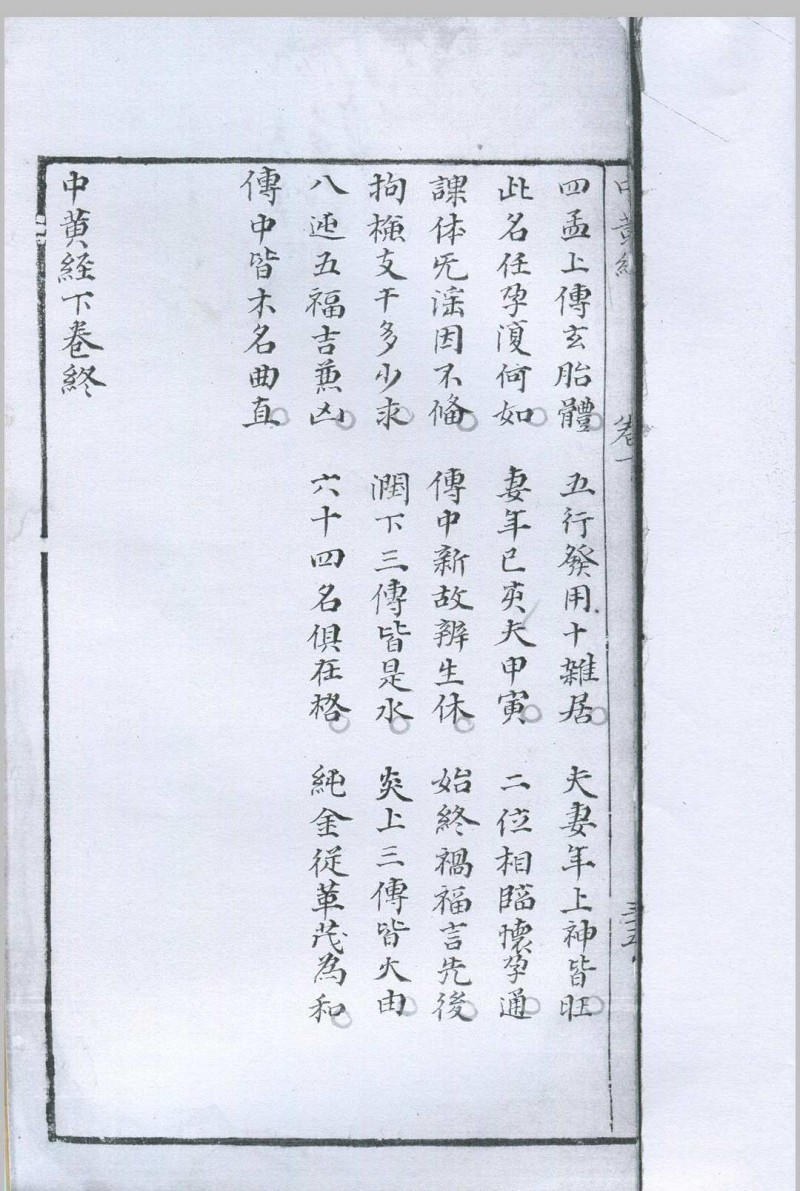 四孟上傳玄胎體 五行發用十雜居 夫妻年上神皆旺
此名任孕復何如 妻年已亥夫申寅 二位相臨懷孕通
課体旡滛因不俻 傳中新故辨生休 始終禍福言先後
拘檢支干多少求 潤下三傳皆是水 炎上三傳皆火由
八迍五福吉兼凶 六十四名俱在格 純金從革茂為和
傳中皆木名曲直
中黄経下卷終